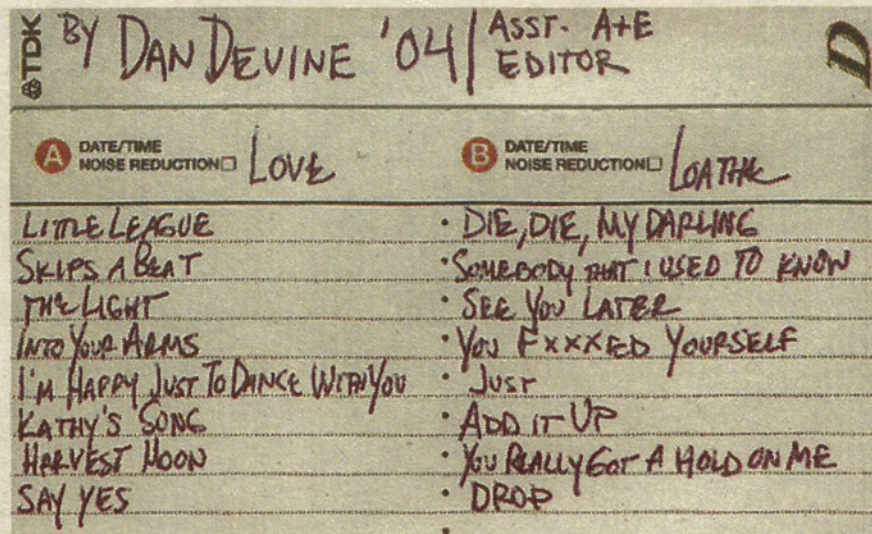 TDK
BY DAN DEVINE '04/ ASST. A+E
EDITOR
D
A DATE/TIME
NOISE REDUCTION LOVE
B DATE/TIME
NOISE REDUCTION LOATHE
LITTLE LEAGUE
SKIPS A BEAT
THE LIGHT
INTO YOUR ARMS
I'M HAPPY JUST TO DANCE WITH YOU
KATHY'S SONG
HARVEST MOON
SAY YES
· DIE, DIE, MY DARLING
· SOMEBODY THAT I USED TO KNOW
· SEE YOU LATER
· YOU FXXXED YOURSELF
· JUST
· ADD IT UP
· YOU REALLY GOT A HOLD ON ME
· DROP